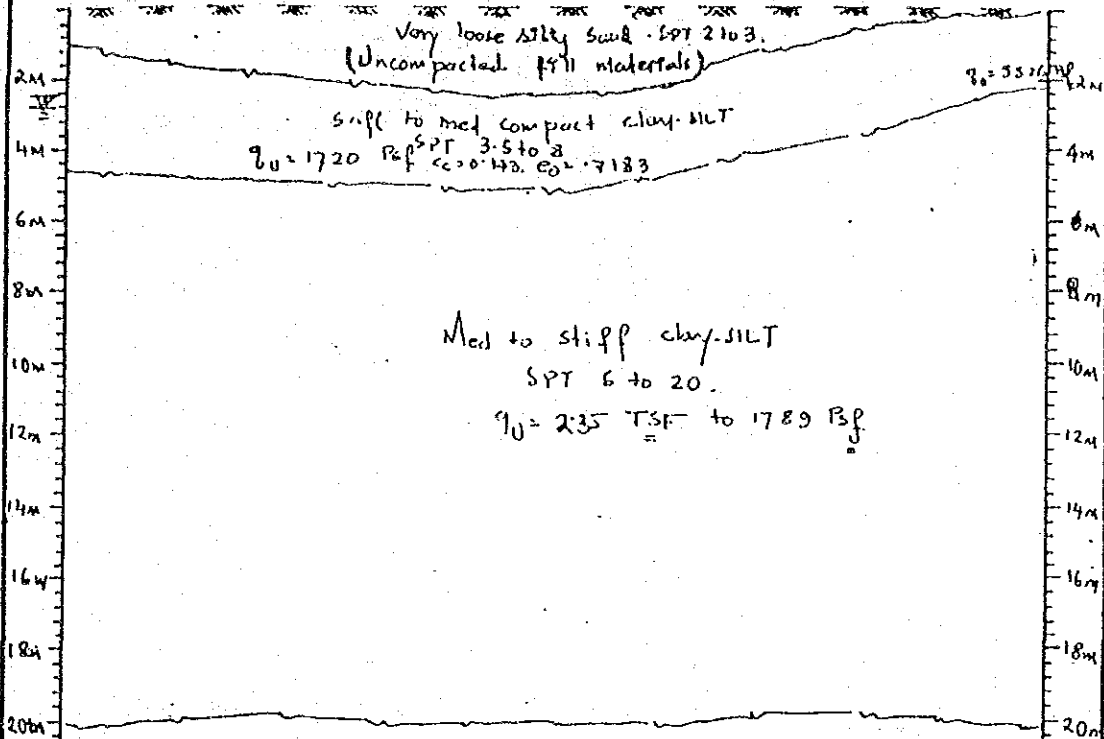 Very loose silty Sand. SPT 2 to 3.
(Uncompacted fill materials)
stiff to med compact clay-SILT
SPT 3.5 to 8
qu = 1720 Psf cc=0.143. eo= .7183
Med to stiff clay-SILT
SPT 6 to 20.
qu = 2.35 TSF to 1789 Psf
2M
4M
6M
8M
10M
12M
14M
16M
18M
20M
2M
4M
6M
8M
10M
12M
14M
16M
18M
20M